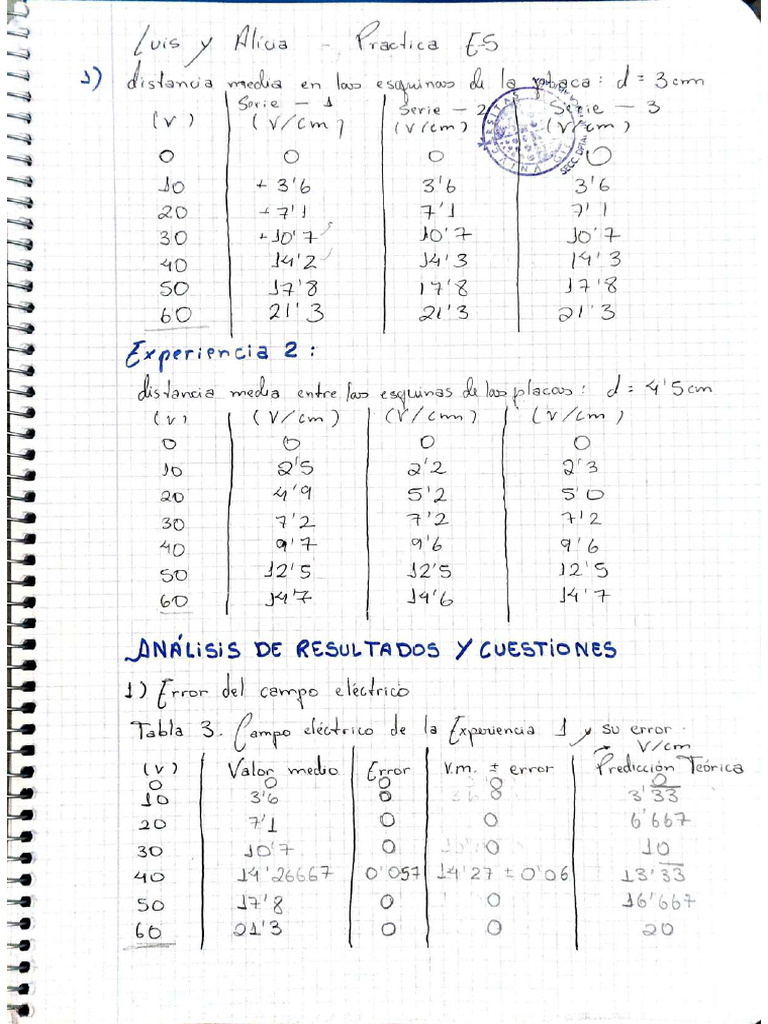 Luis y Alicia - Practica E-5
1) distancia media en las esquinas de la placa: d = 3cm
(V) Serie - 1 (V/cm) Serie - 2 (V/cm) Serie - 3 (V/cm)
0 0 0 0
10 + 3'6 3'6 3'6
20 + 7'1 7'1 7'1
30 + 10'7 10'7 10'7
40 14'2 14'3 14'3
50 17'8 17'8 17'8
60 21'3 21'3 21'3
Experiencia 2:
distancia media entre las esquinas de las placas: d = 4'5cm
(V) (V/cm) (V/cm) (V/cm)
0 0 0 0
10 2'5 2'2 2'3
20 4'9 5'2 5'0
30 7'2 7'2 7'2
40 9'7 9'6 9'6
50 12'5 12'5 12'5
60 14'7 14'6 14'7
ANÁLISIS DE RESULTADOS Y CUESTIONES
1) Error del campo eléctrico
Tabla 3. Campo eléctrico de la Experiencia 1 y su error.
→ V/cm
(V) Valor medio Error V.m. ± error Predicción Teórica
0 0 0 0 0
10 3'6 0 0 3'33
20 7'1 0 0 6'667
30 10'7 0 0 10
40 14'26667 0'057 14'27 ± 0'06 13'33
50 17'8 0 0 16'667
60 21'3 0 0 20